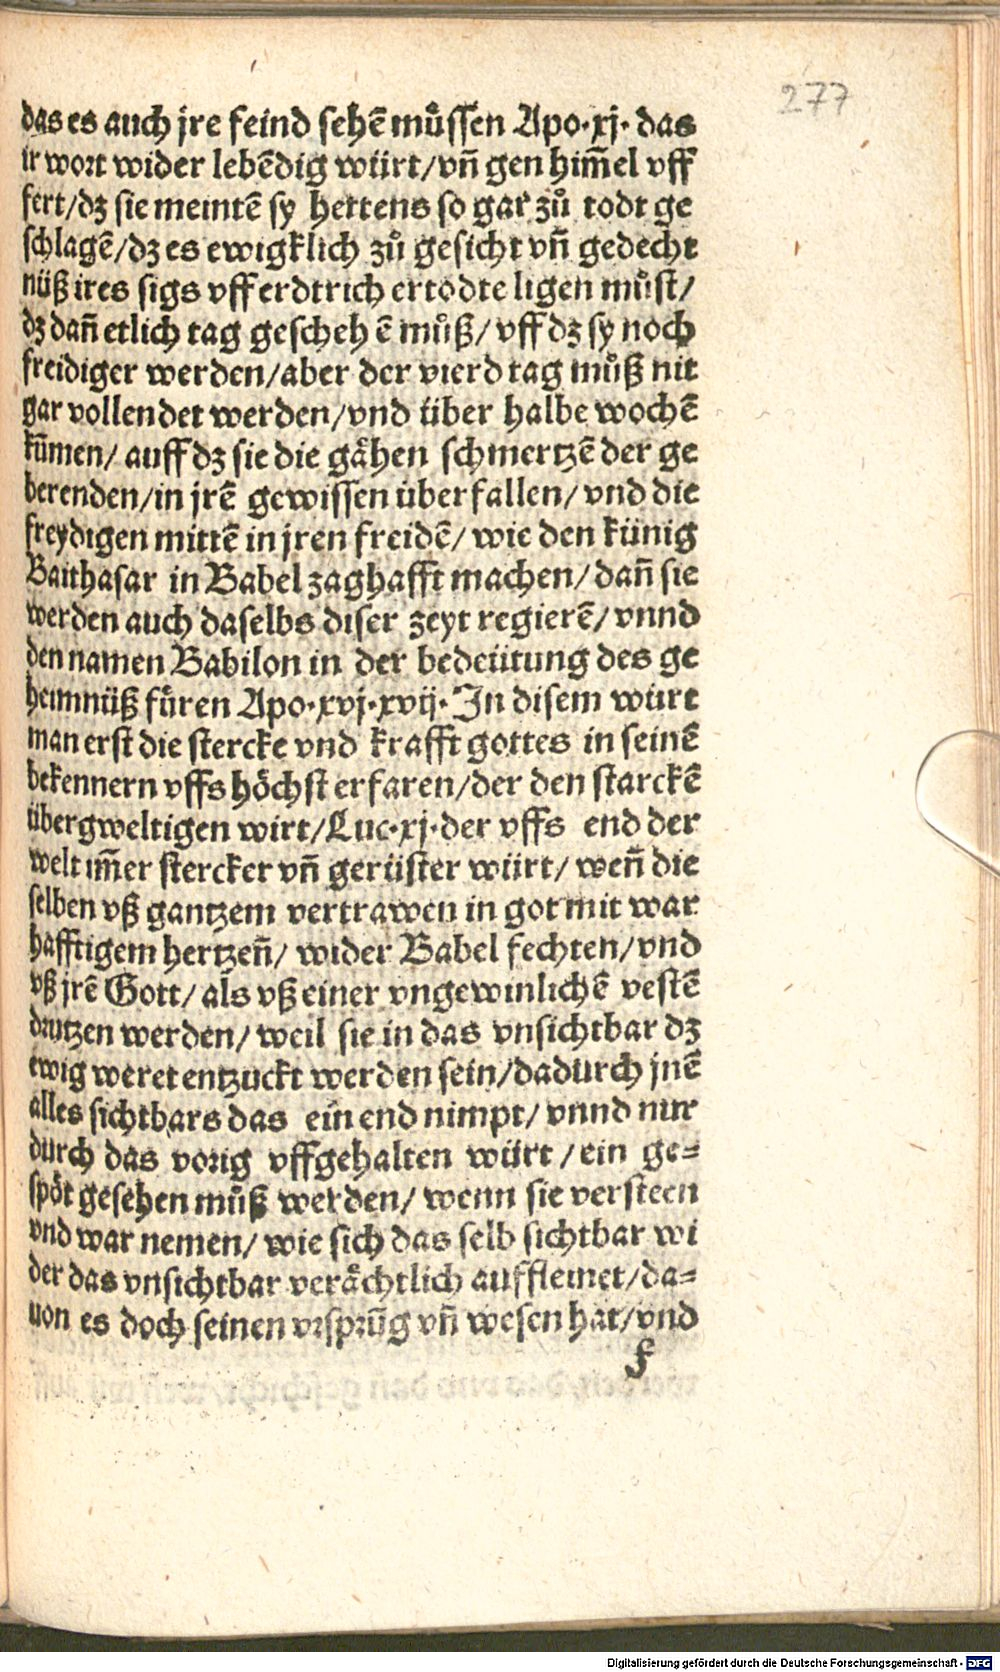 277
das es auch jre feind sehē můssen Apo·xj· das
ir wort wider lebēdig würt/vn̄ gen him̄el vff
fert/dz sie meintē sy hettens so gar zů todt ge
schlagē/dz es ewigklich zů gesicht vn̄ gedecht
nüß ires sigs vff erdtrich ertodte ligen můst/
dz dan̄ etlich tag gescheh ē můß/vff dz sy noch
freidiger werden/aber der vierd tag můß nit
gar vollendet werden/vnd über halbe wochē
kūmen/auff dz sie die gåhen schmertzē der ge
berenden/in jrē gewissen überfallen/vnd die
freydigen mittē in jren freidē/wie den künig
Balthasar in Babel zaghafft machen/dan̄ sie
werden auch daselbs diser zeyt regierē/vnnd
den namen Babilon in der bedeütung des ge
heimnüß füren Apo·xvj·xvij· In disem würt
man erst die stercke vnd krafft gottes in seinē
bekennern vffs höchst erfaren/der den starckē
übergweltigen wirt/Luc·xj·der vffs end der
welt im̄er stercker vn̄ gerüster würt/wen̄ die
selben vß gantzem vertrawen in got mit war
hafftigem hertzen̄/wider Babel fechten/vnd
vß jrē Gott/als vß einer vngewinlichē vestē
drutzen werden/weil sie in das vnsichtbar dz
ewig weret entzuckt werden sein/dadurch jnē
alles sichtbars das ein end nimpt/vnnd nur
durch das vorig vffgehalten würt/ein ge=
spöt gesehen můß werden/wenn sie versteen
vnd war nemen/wie sich das selb sichtbar wi
der das vnsichtbar verächtlich auffleinet/da=
uon es doch seinen vrsprūg vn̄ wesen hat/vnd
f
Digitalisierung gefördert durch die Deutsche Forschungsgemeinschaft - DFG